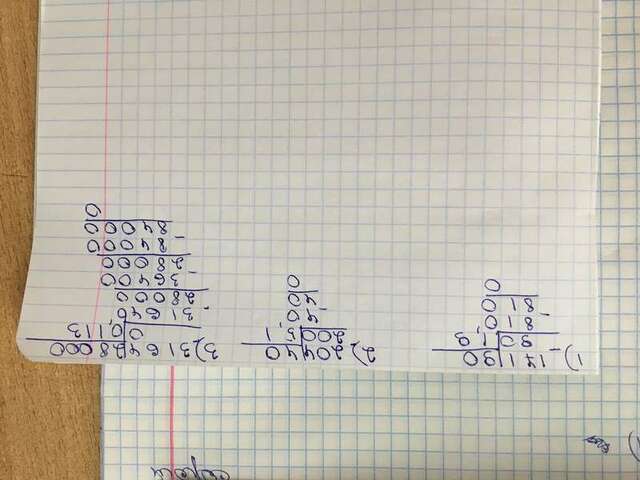 1) 171 90
- 90 1,9
810
- 810
0
2) 204 40
- 200 5,1
40
- 40
0
3) 3164 28000
- 0 0,113
31640
- 28000
36400
- 28000
84000
- 84000
0